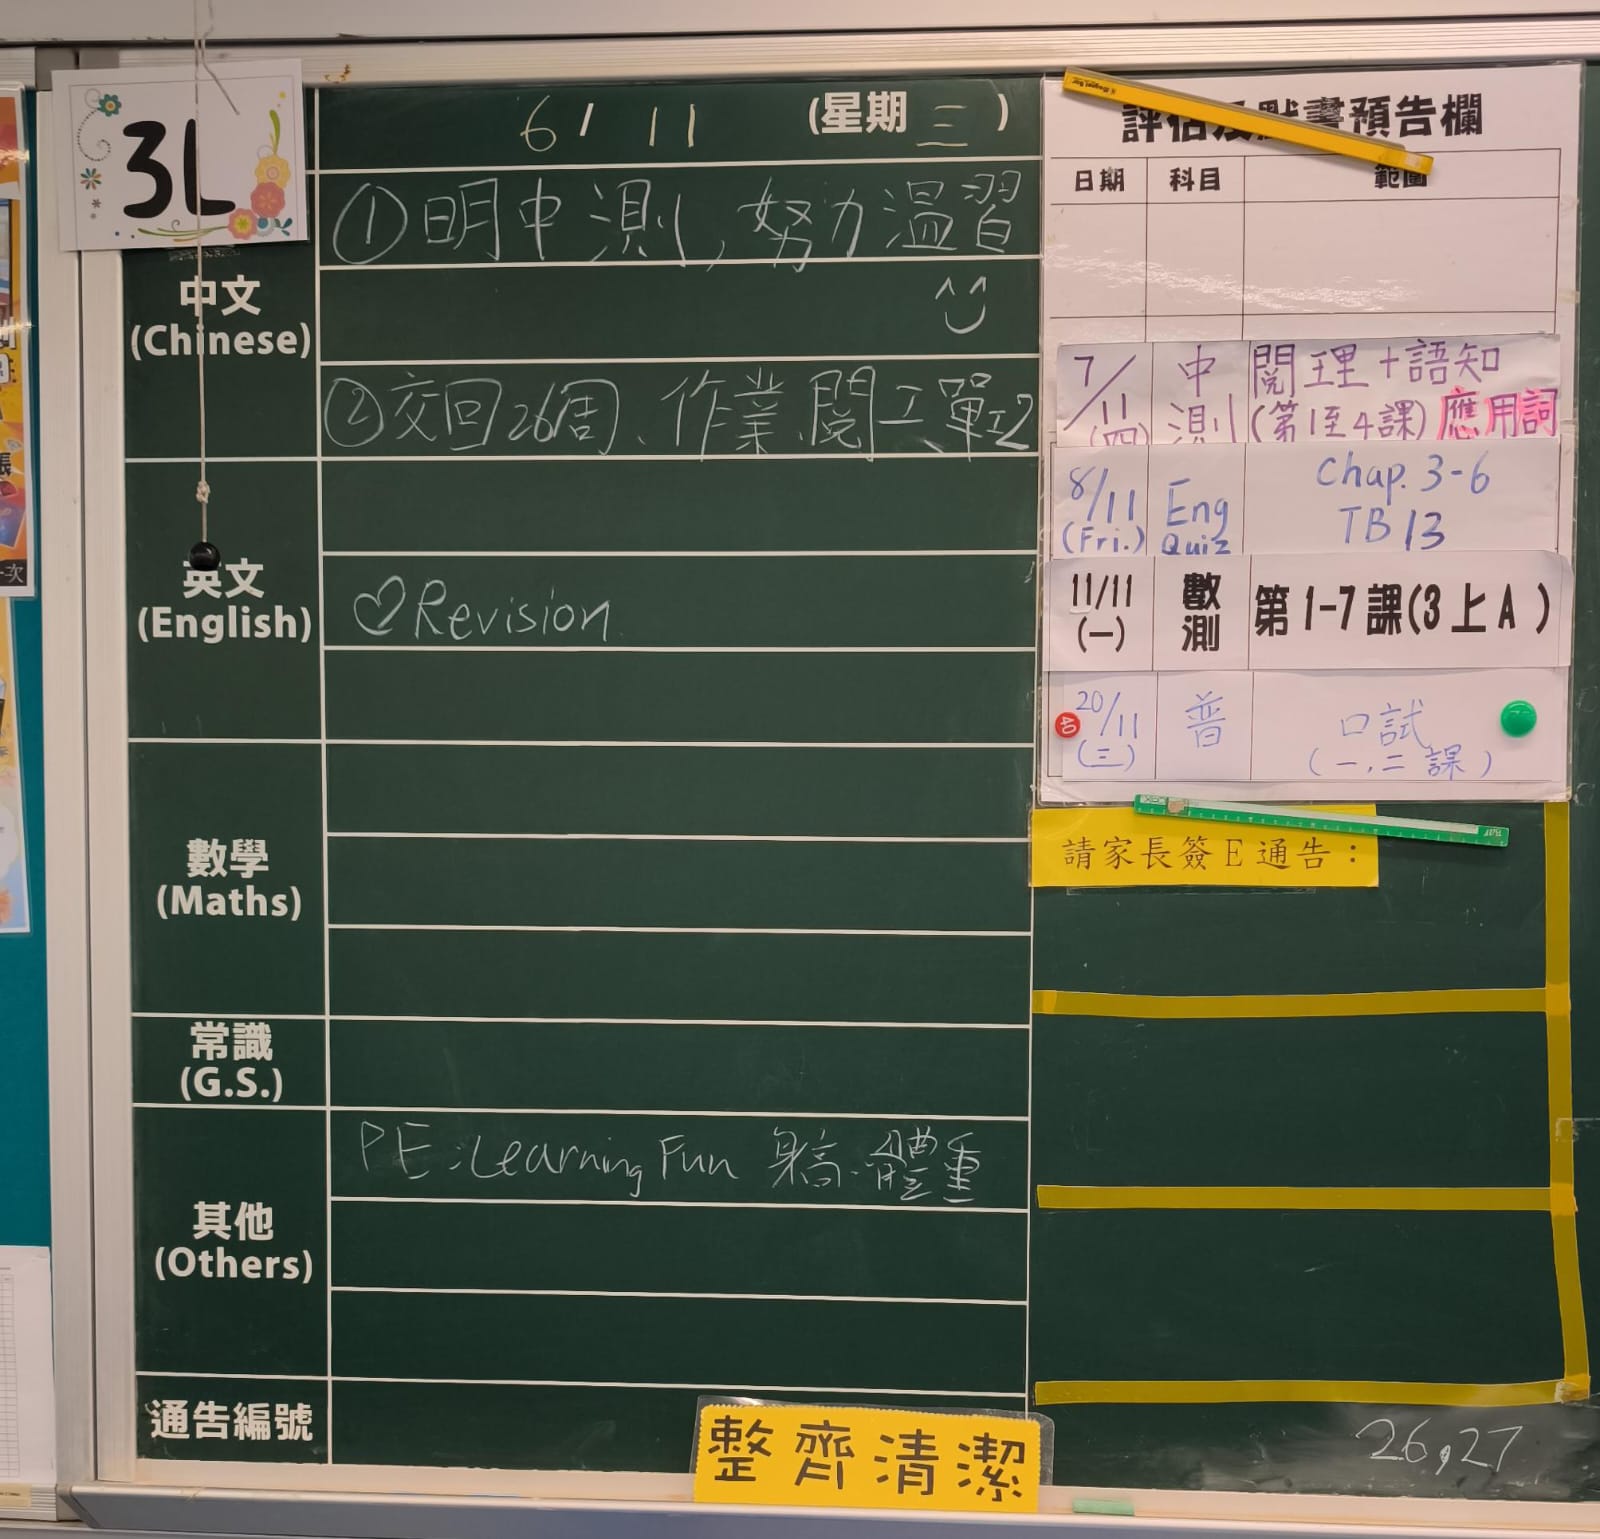 3L
6/11 (星期三)
中文
(Chinese)
①明中測,努力温習
②交回26周、作業、閱工單
英文
(English)
♡Revision
數學
(Maths)
常識
(G.S.)
其他
(Others)
PE:Learning Fun 身高、體重
通告編號
整齊清潔
預告欄
日期 科目 範圍
7/11 (四) 中測 閱理+語知 (第1至4課) 應用詞
8/11 (Fri.) Eng Quiz Chap. 3-6 TB 13
11/11 (一) 數測 第1-7課(3上A)
20/11 (三) 普 口試 (一,二課)
40
請家長簽E通告:
26,27